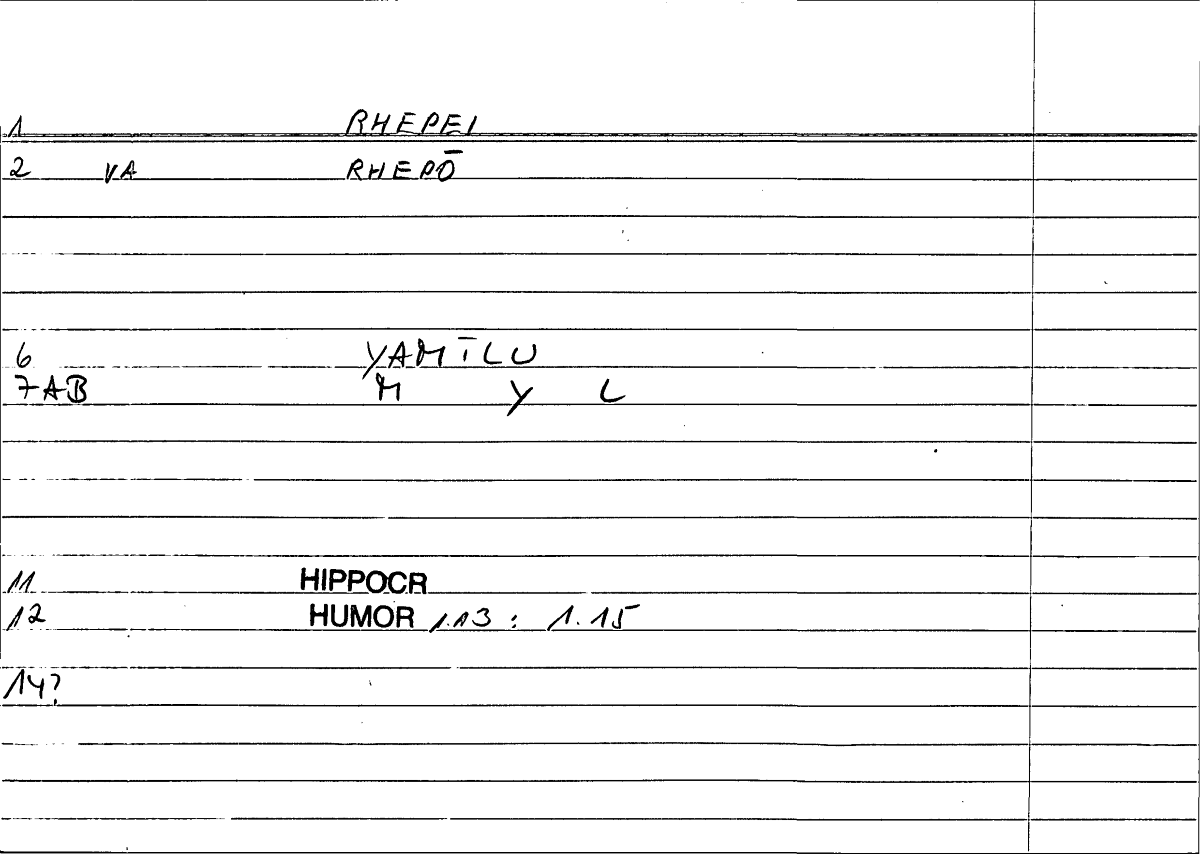 1 RHEPEI
2 VA RHEPŌ
6 YAMĪLU
7AB M Y L
11 HIPPOCR
12 HUMOR 1.13 : 1.15
14?